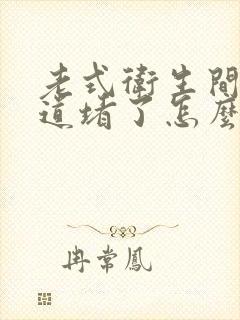 老式衛生間
道堵了怎麼
冉常鳳